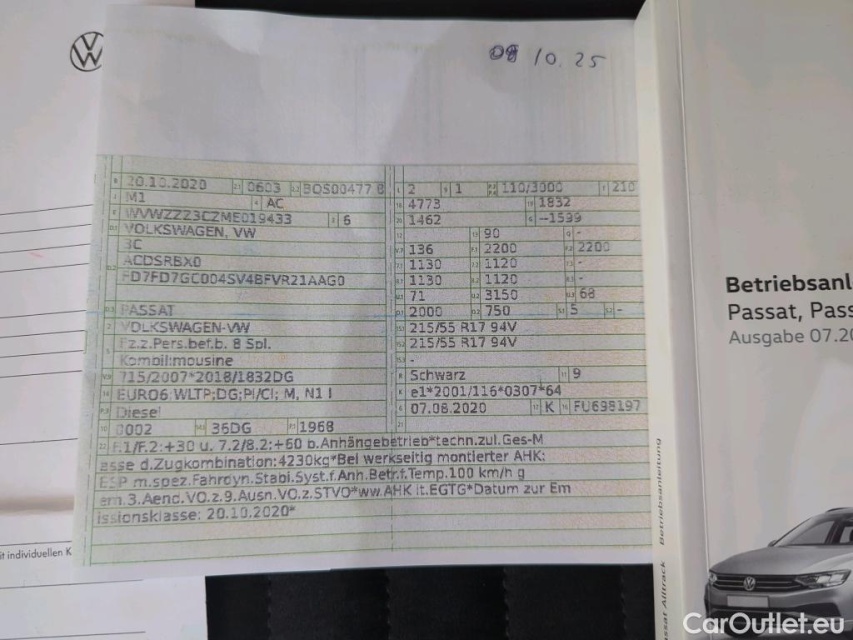 08 10.25
20.10.2020 0603 BOS00477 8
M1 AC
WVWZZZ3CZME019433 6
VOLKSWAGEN, VW
3C
ACDSRBX0
FD7FD7GC004SV4BFVR21AAG0
PASSAT
VOLKSWAGEN-VW
Fz.z.Pers.bef.b. 8 Spl.
Kombilimousine
715/2007*2018/1832DG
EURO6 WLTP;DG;PI/CI; M, N1 I
Diesel
0002 36DG 1968
2 1 110/3000 210
4773 1832
1462 -1599
90 -
136 2200 2200
1130 1120 -
1130 1120 -
71 3150 68
2000 750 5 -
215/55 R17 94V
215/55 R17 94V
-
Schwarz 9
e1*2001/116*0307*64
07.08.2020 K FU698197
F.1/F.2:+30 u. 7.2/8.2:+60 b.Anhängebetrieb*techn.zul.Ges-M
asse d.Zugkombination:4230kg*Bei werkseitig montierter AHK:
ESP m.spez.Fahrdyn.Stabi.Syst.f.Anh.Betr.f.Temp.100 km/h g
em.3.Aend.VO.z.9.Ausn.VO.z.STVO*ww.AHK lt.EGTG*Datum zur Em
issionsklasse: 20.10.2020*
Betriebsanl
Passat, Pass
Ausgabe 07.20
Betriebsanleitung
ssat Alltrack
t individuellen K
CarOutlet.eu